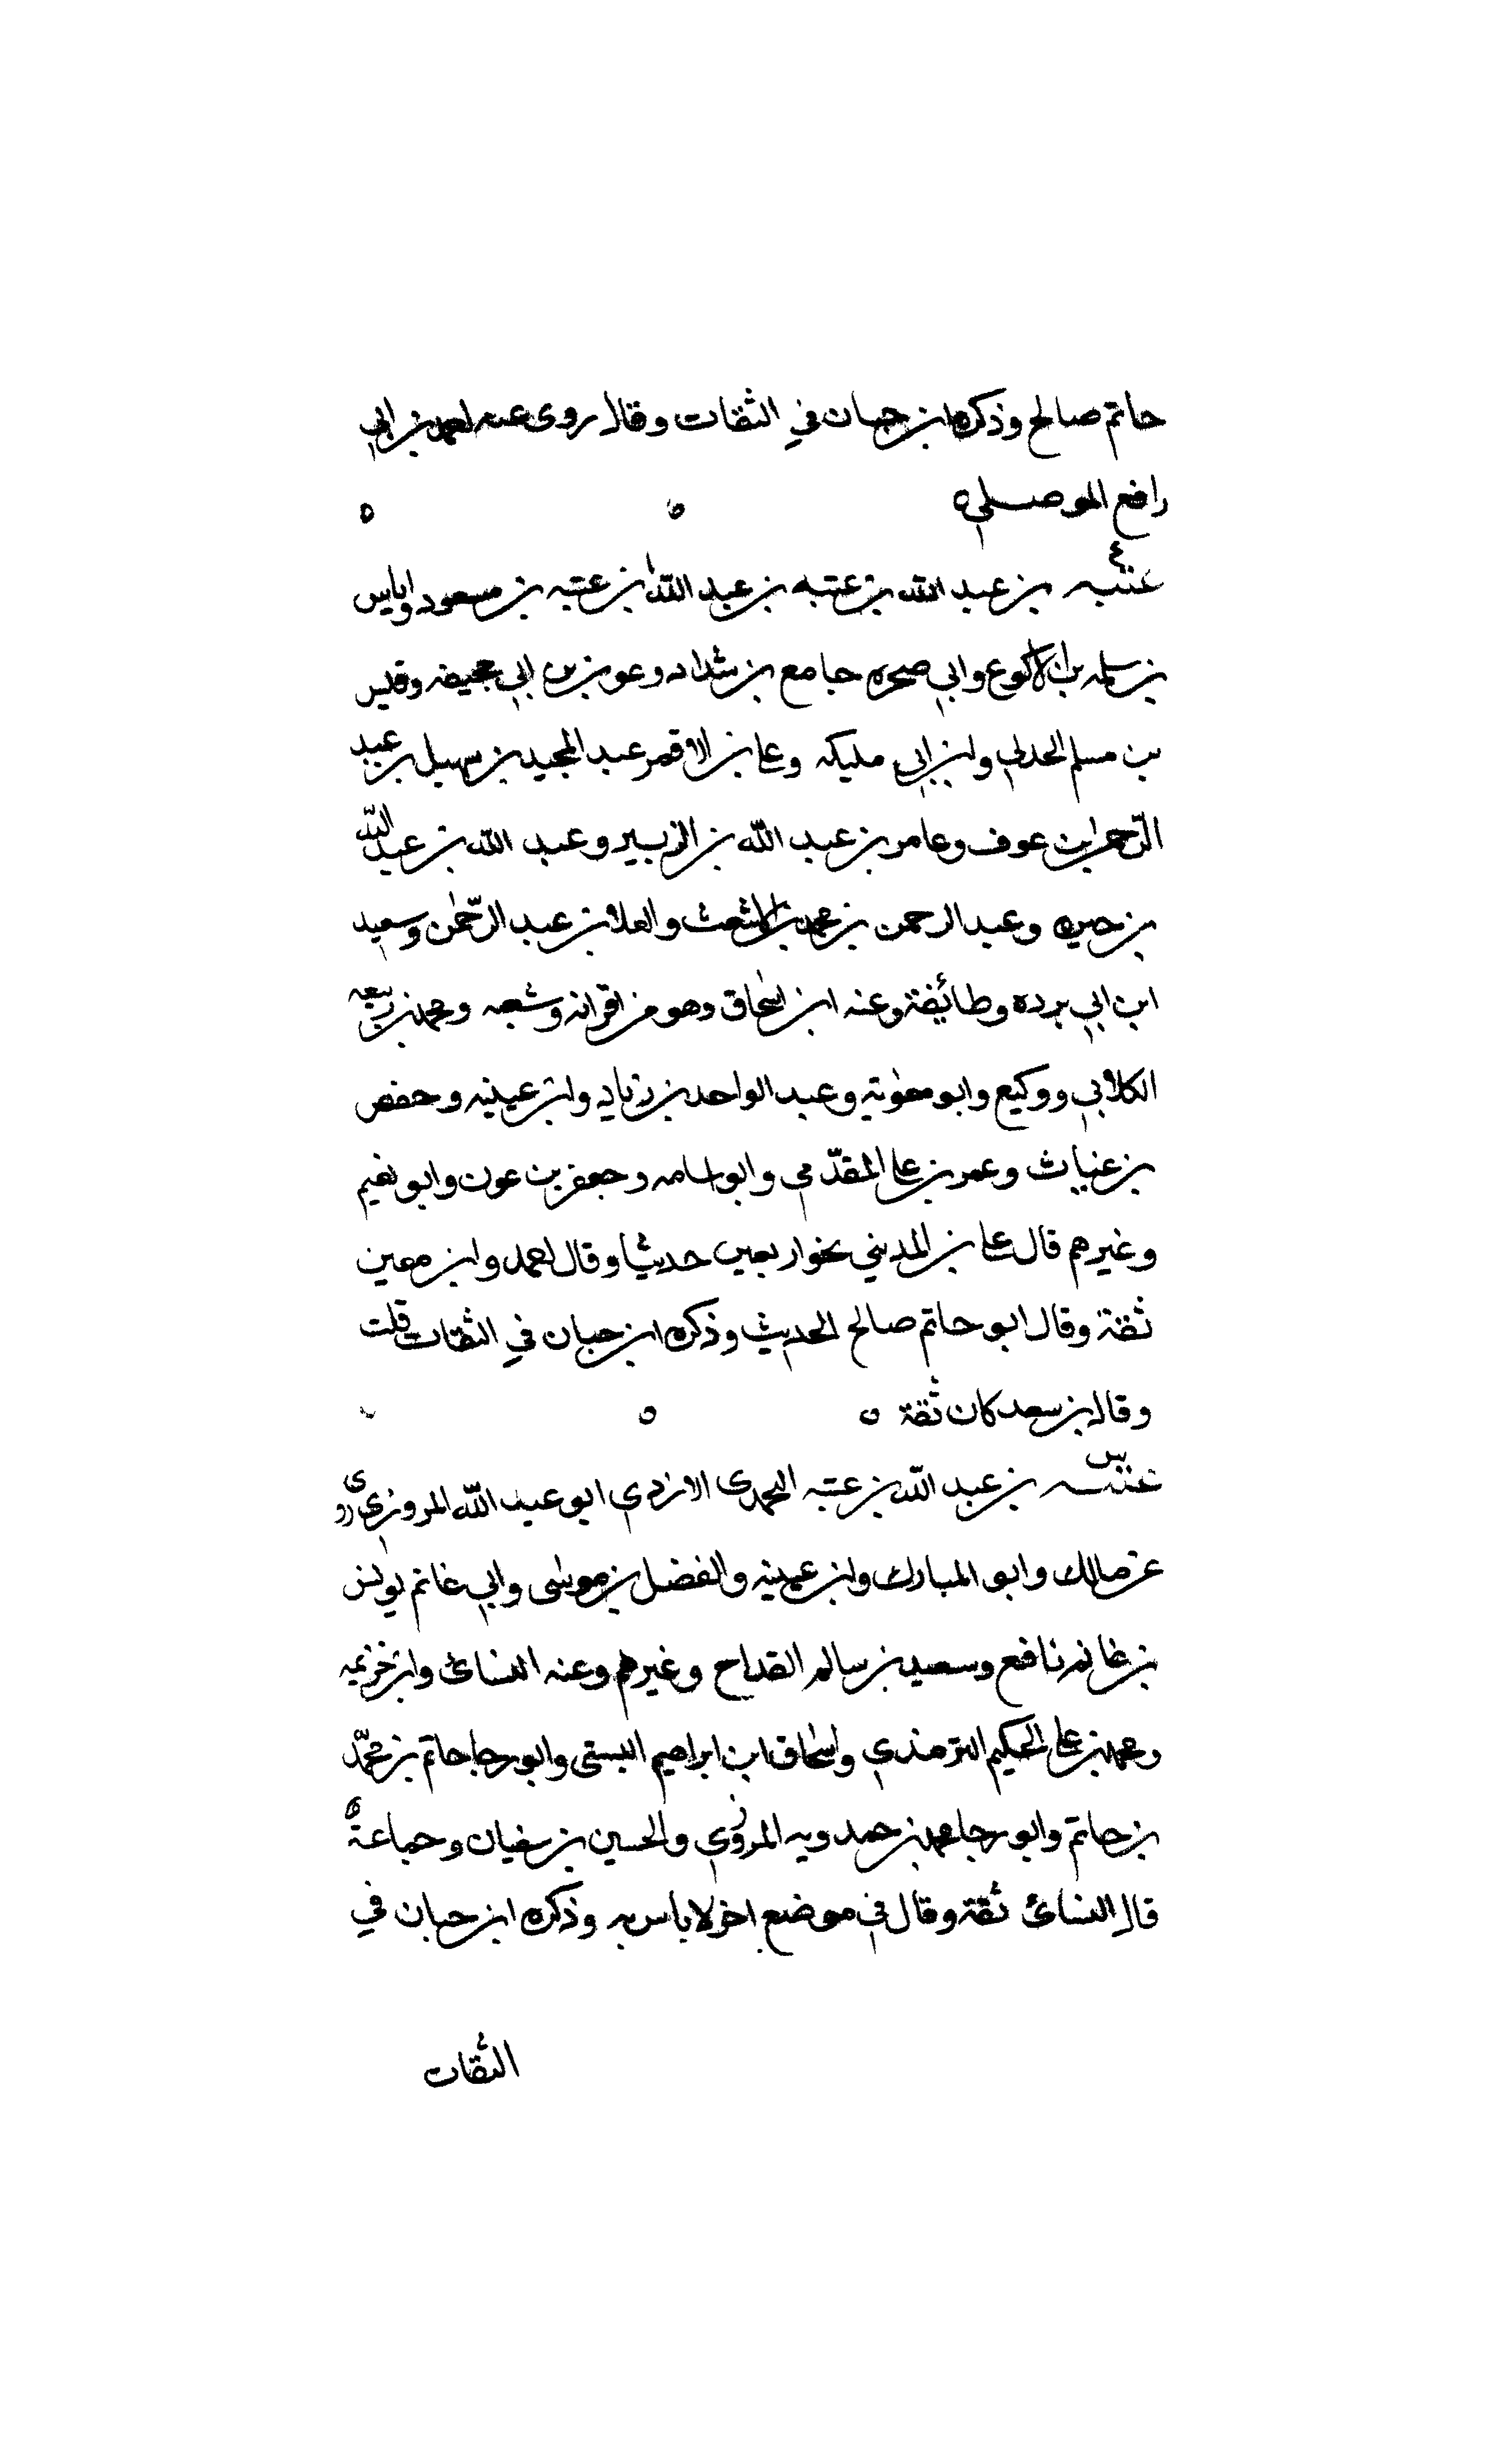 حاتم صالح وذكره ابن حبان في الثقات وقال روى عنه احمد بن ابي
رافع الموصلي ه ه ه
عتبه بن عبد الله بن عتبه بن عبد الله بن عتبه بن مسعود واياس
بن سلمه بن الاكوع وابي صخره جامع بن شداد وعون بن ابي جحيفه وقيس
بن مسلم الجدلي وابن ابي مليكه وعلي بن الاقمر عبد المجيد بن سهيل بن عبد
الرحمن بن عوف وعامر بن عبد الله بن الزبير وعبد الله بن عبد الله
بن جبره وعبد الرحمن بن محمد بن الاشعث والعلا بن عبد الرحمن وسعيد
ابن ابي برده وطائفة وعنه ابن اسحاق وهو من اقرانه وشعبه ومحمد بن ربيعه
الكلابي ووكيع وابو معوية وعبد الواحد بن زياد وابن عيينه وحفص
بن غياث وعمر بن علي المقدّمي وابو اسامه وجعفر بن عون وابو نعيم
وغيرهم قال علي بن المديني نحو اربعين حديثا وقال احمد وابن معين
ثقة وقال ابو حاتم صالح الحديث وذكره ابن حبان في الثقات قلت
وقال بن سعد كان ثقة ه ه
س
عتبه بن عبد الله بن عتبه اليحمدى الازدي ابو عبد الله المروزي روى
عن مالك وابو المبارك وابن عيينه والفضل بن موسى وابي غانم يونس
بن غانم نافع وسعيد بن سالم القداح وغيرهم وعنه النسائ وابن خزيمه
ومحمد بن علي الحكيم الترمذي واسحاق ابن ابراهيم البستى وابو رجا حاتم بن محمّد
بن حاتم وابو رجا محمد بن حمدويه المروزي والحسين بن سفيان وجماعة ه
قال النسائ ثقة وقال في موضع اخر لا باس به وذكره ابن حبان في
الثقات